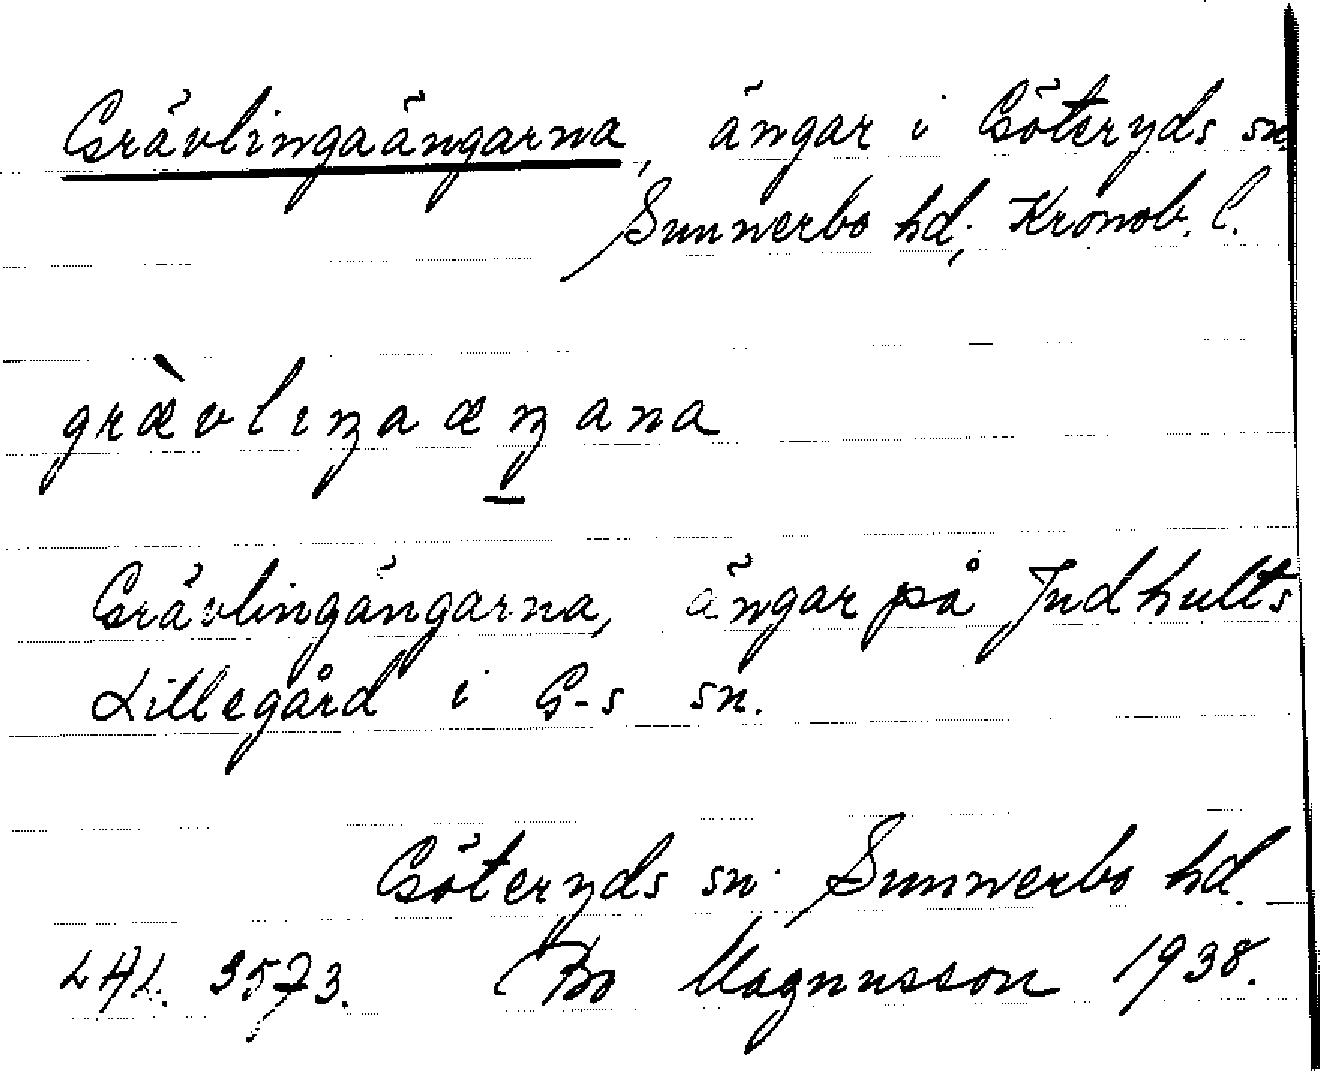 Grävlingaängarna, ängar i Göteryds sn,
Sunnerbo hd, Kronob. l.
græ̀vliŋaæŋana
Grävlingängarna, ängar på Judhults
Lillegård i G-s sn.
Göteryds sn. Sunnerbo hd.
LAL. 3573. Bo Magnusson 1938.